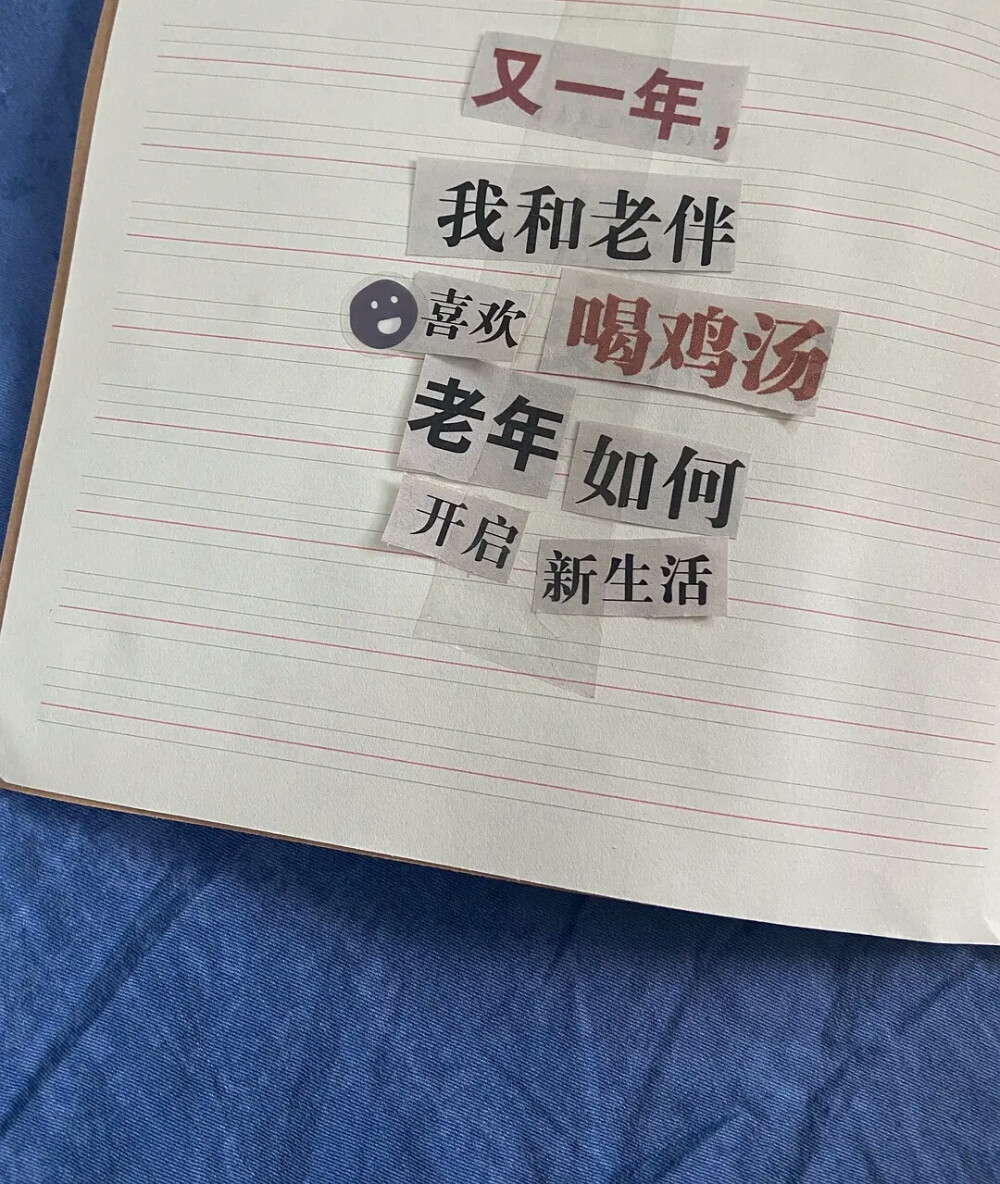 又一年，
我和老伴
喜欢 喝鸡汤
老年 如何
开启 新生活